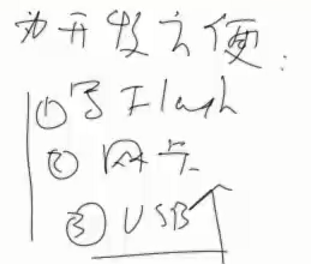 为开发方便:
①写Flash
②网卡
③USB